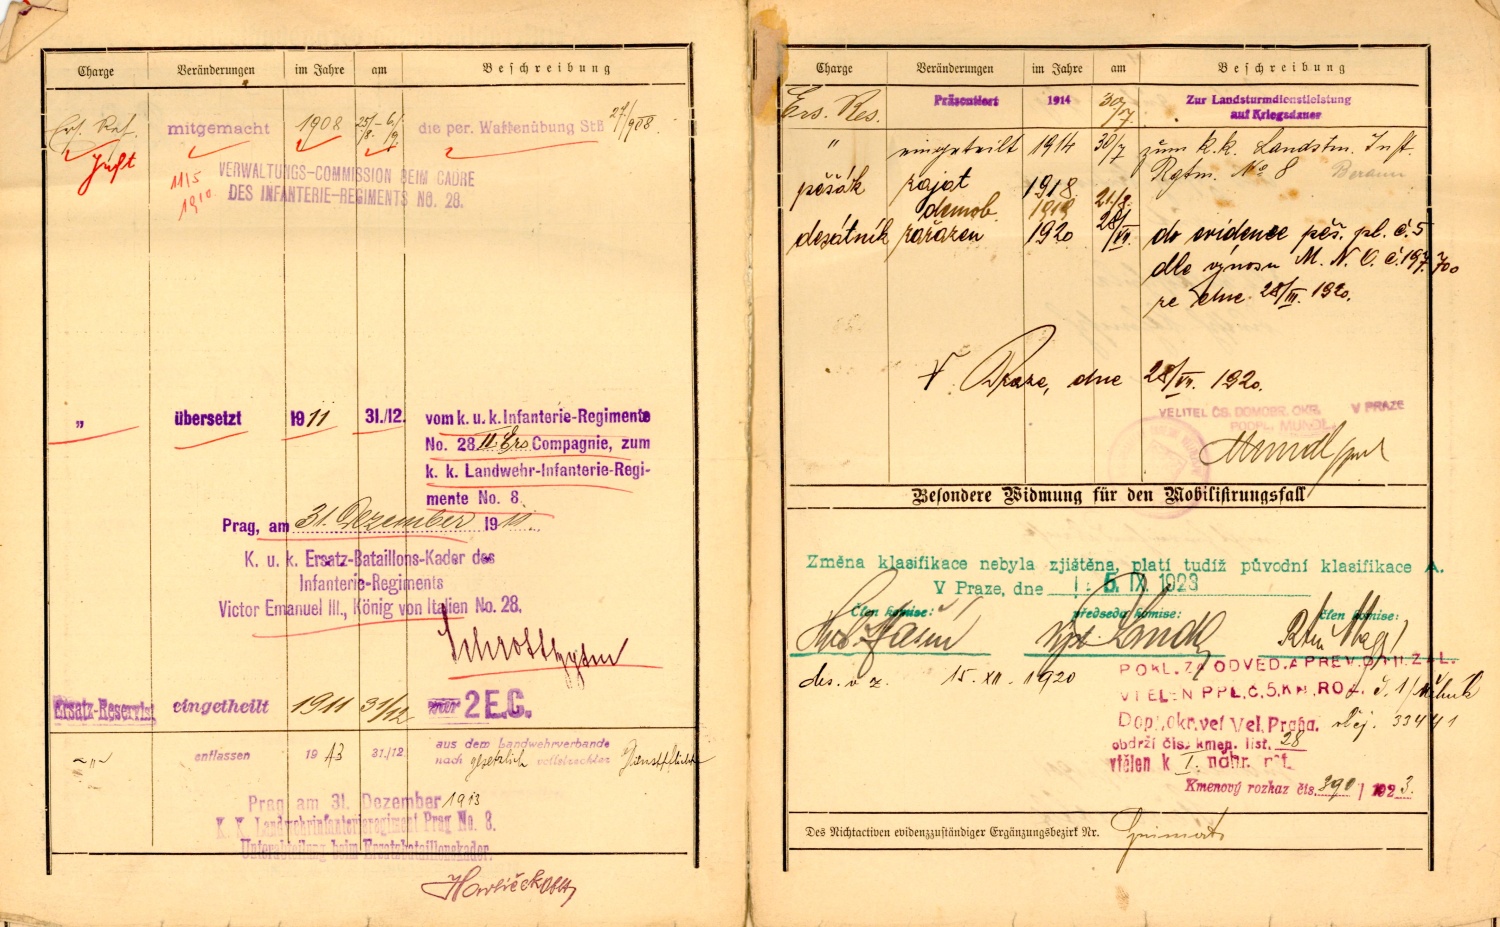 Charge Veränderungen im Jahre am Beschreibung
Ers. Res. mitgemacht 1908 25/8.-6/9 die per. Waffenübung StB 27/9 908.
11/5 1910
VERWALTUNGS-COMMISSION BEIM CADRE
DES INFANTERIE-REGIMENTS No. 28.
„ übersetzt 1911 31./12. vom k. u. k. Infanterie-Regimente
No. 28 11. Ers Compagnie, zum
k. k. Landwehr-Infanterie-Regi-
mente No. 8.
Prag, am 31. Dezember 1911.
K. u. k. Ersatz-Bataillons-Kader des
Infanterie-Regiments
Victor Emanuel III., König von Italien No. 28.
Ersatz-Reservist eingetheilt 1911 31/12 zur 2 E.C.
-„- entlassen 1913 31./12 aus dem Landwehrverbande
nach gesetzlich vollstreckter Dienstpflicht
Prag am 31. Dezember 1913
K. K. Landwehrinfanterieregiment Prag No. 8.
Unterabteilung beim Ersatzbataillonskader.
Havlíček Oblt
Charge Veränderungen im Jahre am Beschreibung
Ers. Res. Präsentiert 1914 30/7 Zur Landsturmdienstleistung
auf Kriegsdauer
„ eingeteilt 1914 30/7 zum k.k. Landstm. Inft.
Rgtm. No 8 Beraun
pěšák zajat 1918
demob. 1919 21/8.
desátník zařazen 1920 28/VI. do evidence pěš. pl. č. 5
dle výnosu M. N. O. č. 197.700
ze dne 28/III. 1920.
V Praze, dne 28/VI. 1920.
VELITEL ČS. DOMOBR. OKR. V PRAZE
PODPL. MUNDL.
Mundl ppl
Besondere Widmung für den Mobilisirungsfall
Změna klasifikace nebyla zjištěna, platí tudíž původní klasifikace A.
V Praze, dne 5. IX. 1923
Člen komise: předseda komise: Člen komise:
des. v z. 15. XII. 1920
POKL. ZA ODVED. A PŘEV.
VTĚLEN PPL. Č. 5, KM. RO
Dopl. okr. vel. Vel. Praha. 33441
obdrží čís. kmen. list. 28
vtělen k I. náhr. rot.
Kmenový rozkaz čís. 390 / 1923.
Des Nichtactiven evidenzzuständiger Ergänzungsbezirk Nr.